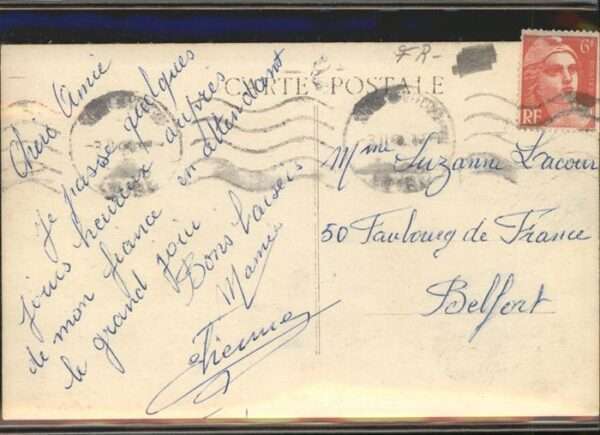 CARTE POSTALE
FR-
6F
RF
Chère Amie
Je passe quelques
jours heureux auprès
de mon fiancé en attendant
le grand jour
Bons baisers
Mamie
Etienne
Mme Suzanne Lacour
50 Faubourg de France
Belfort